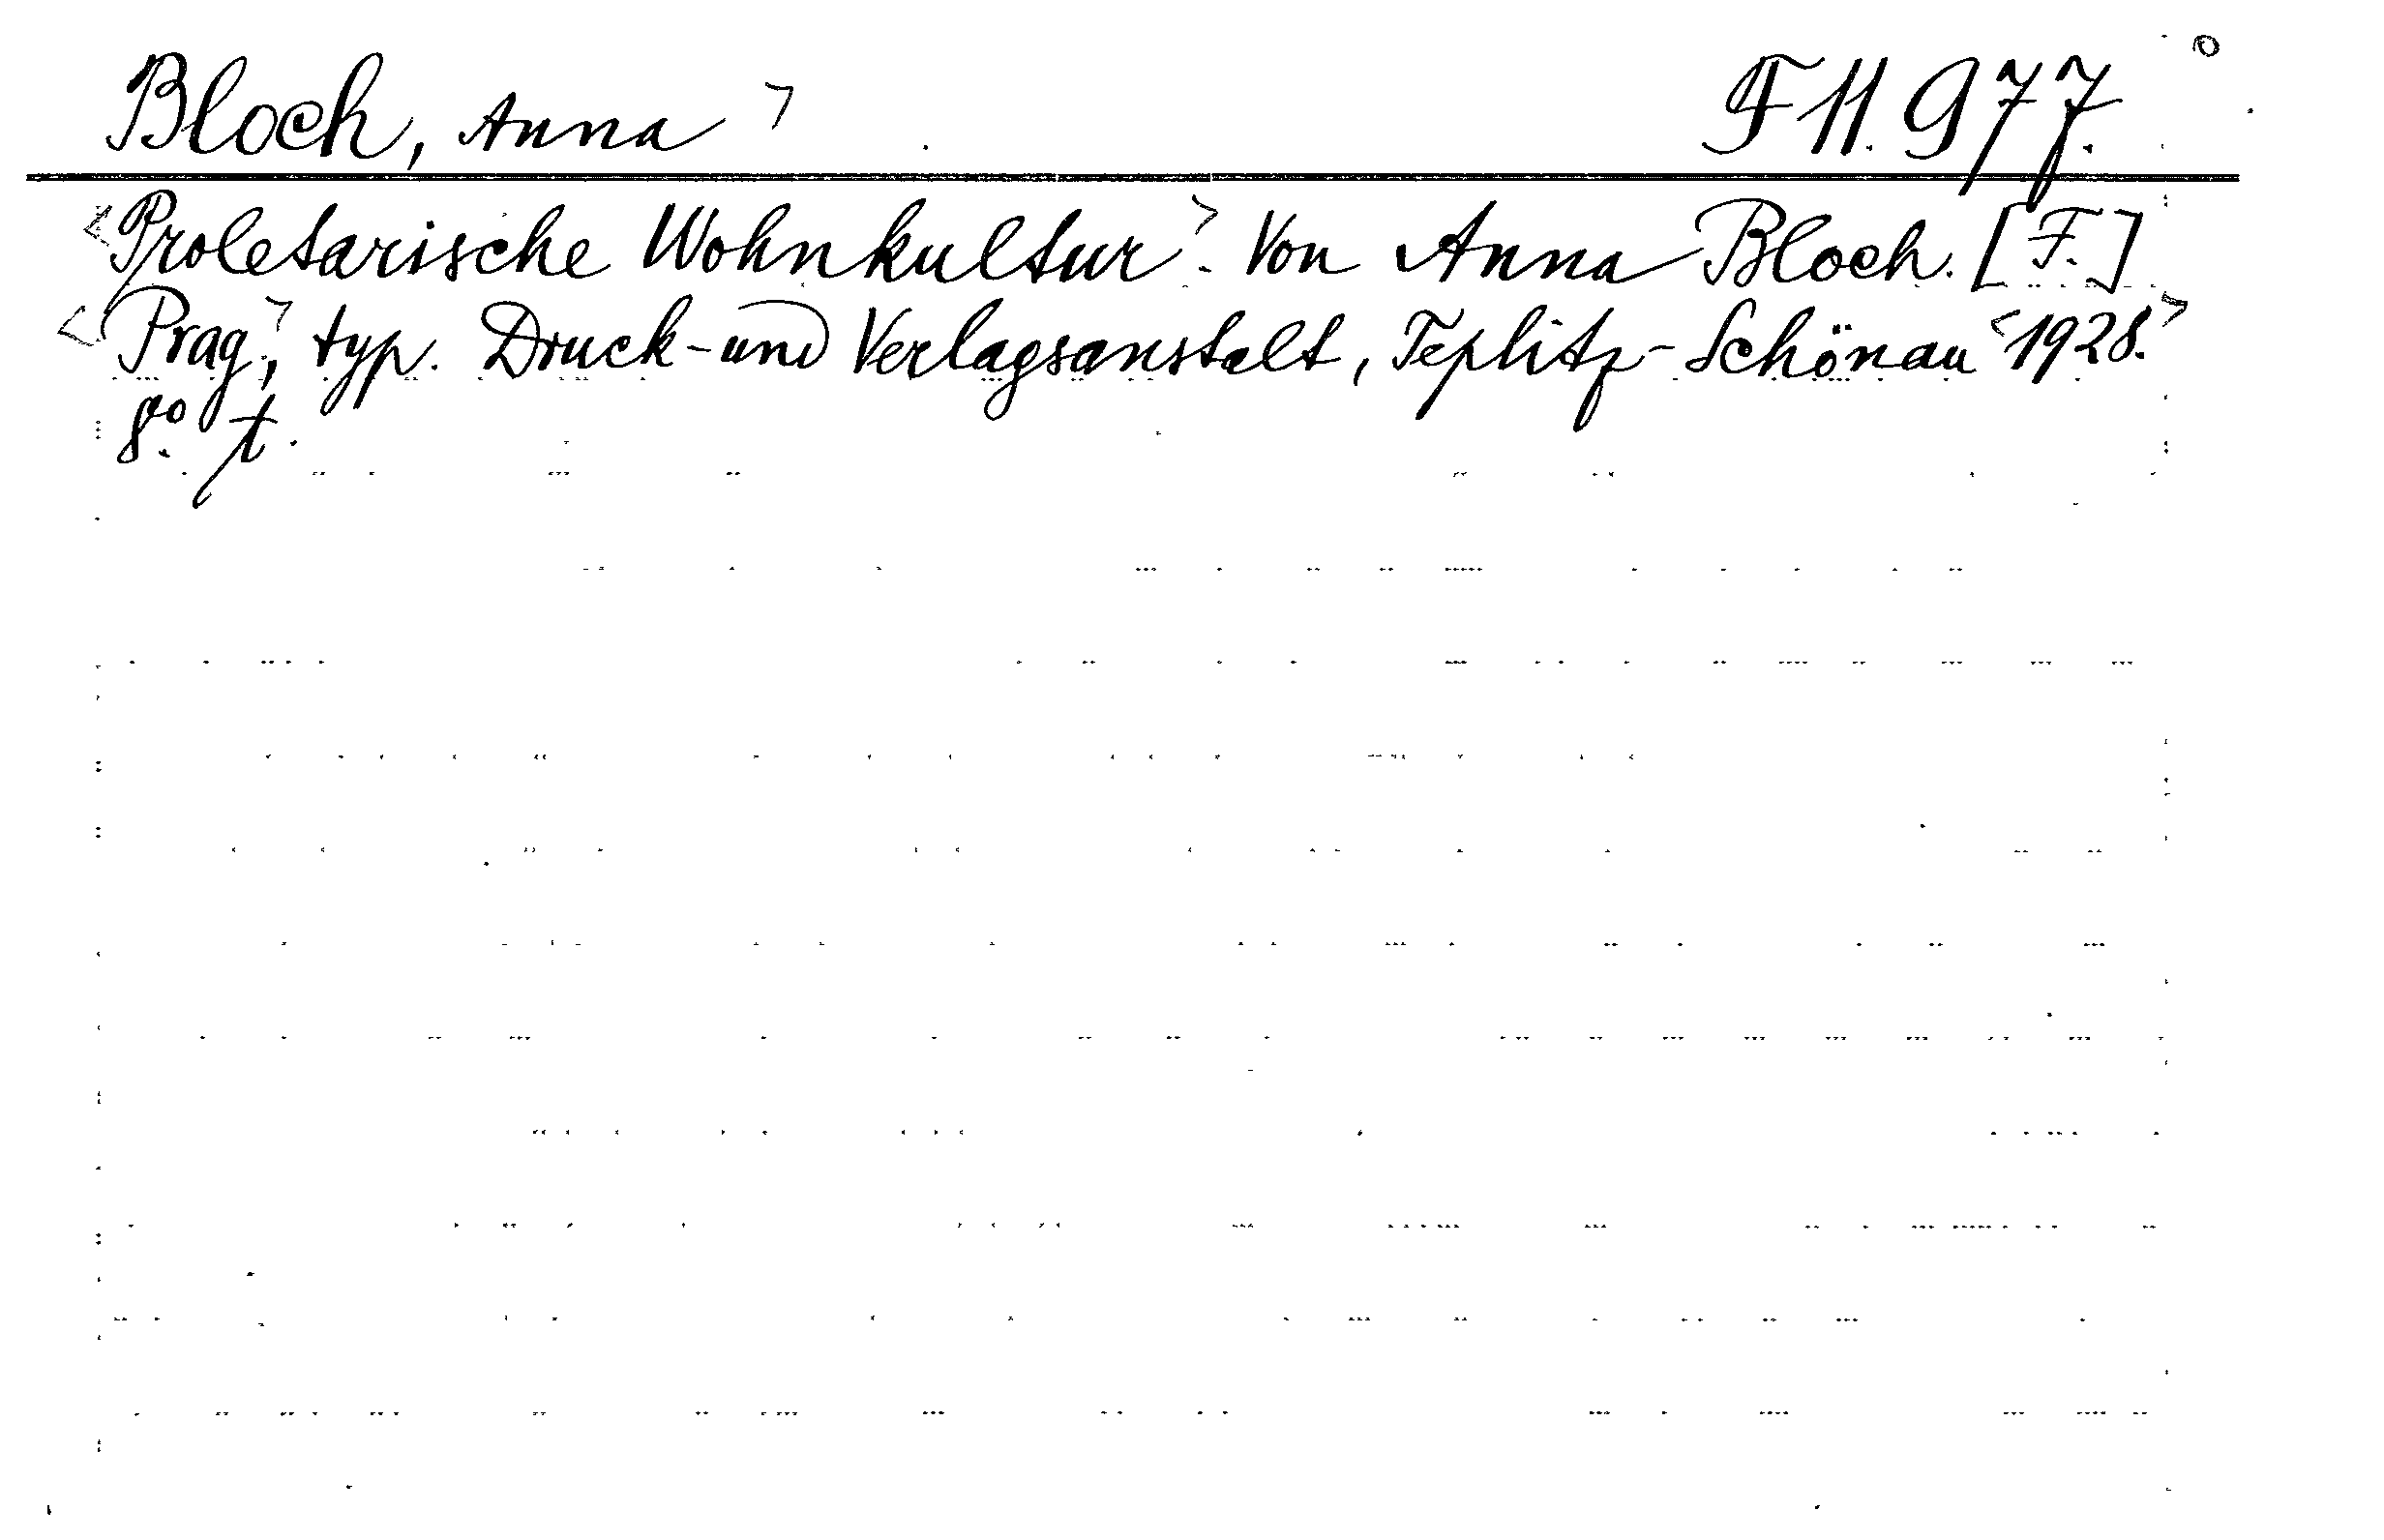 Bloch, Anna > F 11.977.
<Proletarische Wohnkultur>. Von Anna Bloch. [F.]
<Prag>, typ. Druck- und Verlagsanstalt, Teplitz-Schönau <1928.>
8º. t.